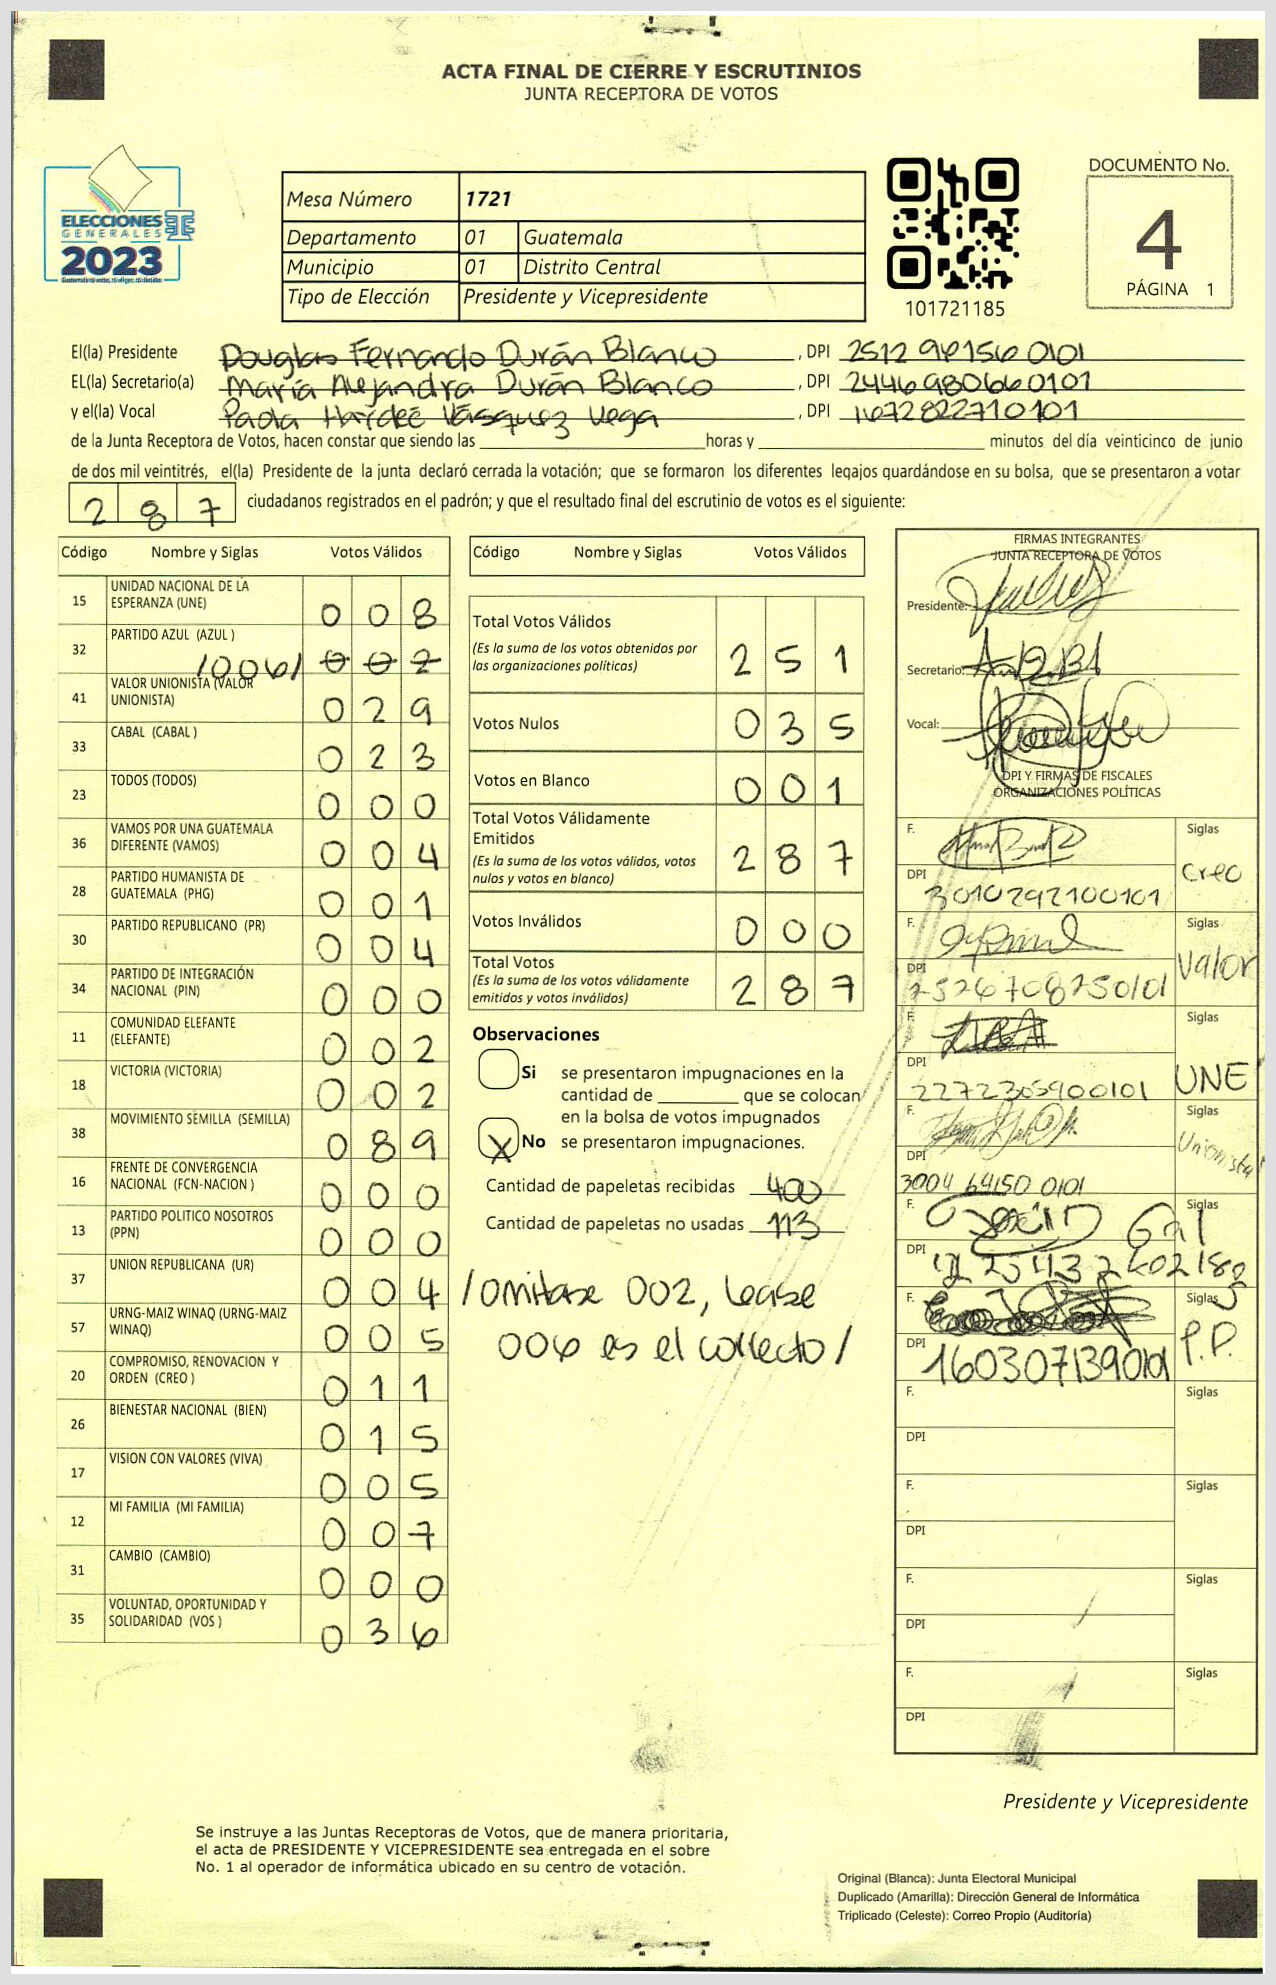 ACTA FINAL DE CIERRE Y ESCRUTINIOS
JUNTA RECEPTORA DE VOTOS
ELECCIONES
GENERALES
2023
Mesa Número 1721
Departamento 01 Guatemala
Municipio 01 Distrito Central
Tipo de Elección Presidente y Vicepresidente
101721185
DOCUMENTO No.
4
PÁGINA 1
El(la) Presidente Douglas Fernando Durán Blanco , DPI 2512 98156 0101
EL(la) Secretario(a) María Alejandra Durán Blanco , DPI 2446 98066 0101
y el(la) Vocal Paola Haydeé Vásquez Vega , DPI 1672822710101
de la Junta Receptora de Votos, hacen constar que siendo las horas y minutos del día veinticinco de junio
de dos mil veintitrés, el(la) Presidente de la junta declaró cerrada la votación; que se formaron los diferentes legajos guardándose en su bolsa, que se presentaron a votar
287 ciudadanos registrados en el padrón; y que el resultado final del escrutinio de votos es el siguiente:
Código Nombre y Siglas Votos Válidos
15 UNIDAD NACIONAL DE LA ESPERANZA (UNE) 008
32 PARTIDO AZUL (AZUL ) /006/ 002
41 VALOR UNIONISTA (VALOR UNIONISTA) 029
33 CABAL (CABAL ) 023
23 TODOS (TODOS) 000
36 VAMOS POR UNA GUATEMALA DIFERENTE (VAMOS) 004
28 PARTIDO HUMANISTA DE GUATEMALA (PHG) 001
30 PARTIDO REPUBLICANO (PR) 004
34 PARTIDO DE INTEGRACIÓN NACIONAL (PIN) 000
11 COMUNIDAD ELEFANTE (ELEFANTE) 002
18 VICTORIA (VICTORIA) 002
38 MOVIMIENTO SEMILLA (SEMILLA) 089
16 FRENTE DE CONVERGENCIA NACIONAL (FCN-NACION ) 000
13 PARTIDO POLITICO NOSOTROS (PPN) 000
37 UNION REPUBLICANA (UR) 004
57 URNG-MAIZ WINAQ (URNG-MAIZ WINAQ) 005
20 COMPROMISO, RENOVACION Y ORDEN (CREO ) 011
26 BIENESTAR NACIONAL (BIEN) 015
17 VISION CON VALORES (VIVA) 005
12 MI FAMILIA (MI FAMILIA) 007
31 CAMBIO (CAMBIO) 000
35 VOLUNTAD, OPORTUNIDAD Y SOLIDARIDAD (VOS ) 036
Código Nombre y Siglas Votos Válidos
Total Votos Válidos 251
(Es la suma de los votos obtenidos por
las organizaciones políticas)
Votos Nulos 035
Votos en Blanco 001
Total Votos Válidamente
Emitidos 287
(Es la suma de los votos válidos, votos
nulos y votos en blanco)
Votos Inválidos 000
Total Votos 287
(Es la suma de los votos válidamente
emitidos y votos inválidos)
Observaciones
Si se presentaron impugnaciones en la
cantidad de que se colocan
en la bolsa de votos impugnados
X No se presentaron impugnaciones.
Cantidad de papeletas recibidas 400
Cantidad de papeletas no usadas 113
/omitase 002, lease
006 es el correcto/
FIRMAS INTEGRANTES
JUNTA RECEPTORA DE VOTOS
Presidente:
Secretario:
Vocal:
DPI Y FIRMAS DE FISCALES
ORGANIZACIONES POLÍTICAS
F. Siglas
DPI 3010292100101 Creo
F. Siglas
DPI 2526708250101 Valor
F. Siglas
DPI 2272303900101 UNE
F. Siglas
DPI 3004 64150 0101 Unionista
F. Siglas
DPI
F. Siglas
DPI 1603071390101 P.P.
F. Siglas
DPI
F. Siglas
DPI
F. Siglas
DPI
F. Siglas
DPI
Presidente y Vicepresidente
Se instruye a las Juntas Receptoras de Votos, que de manera prioritaria,
el acta de PRESIDENTE Y VICEPRESIDENTE sea entregada en el sobre
No. 1 al operador de informática ubicado en su centro de votación.
Original (Blanca): Junta Electoral Municipal
Duplicado (Amarilla): Dirección General de Informática
Triplicado (Celeste): Correo Propio (Auditoría)